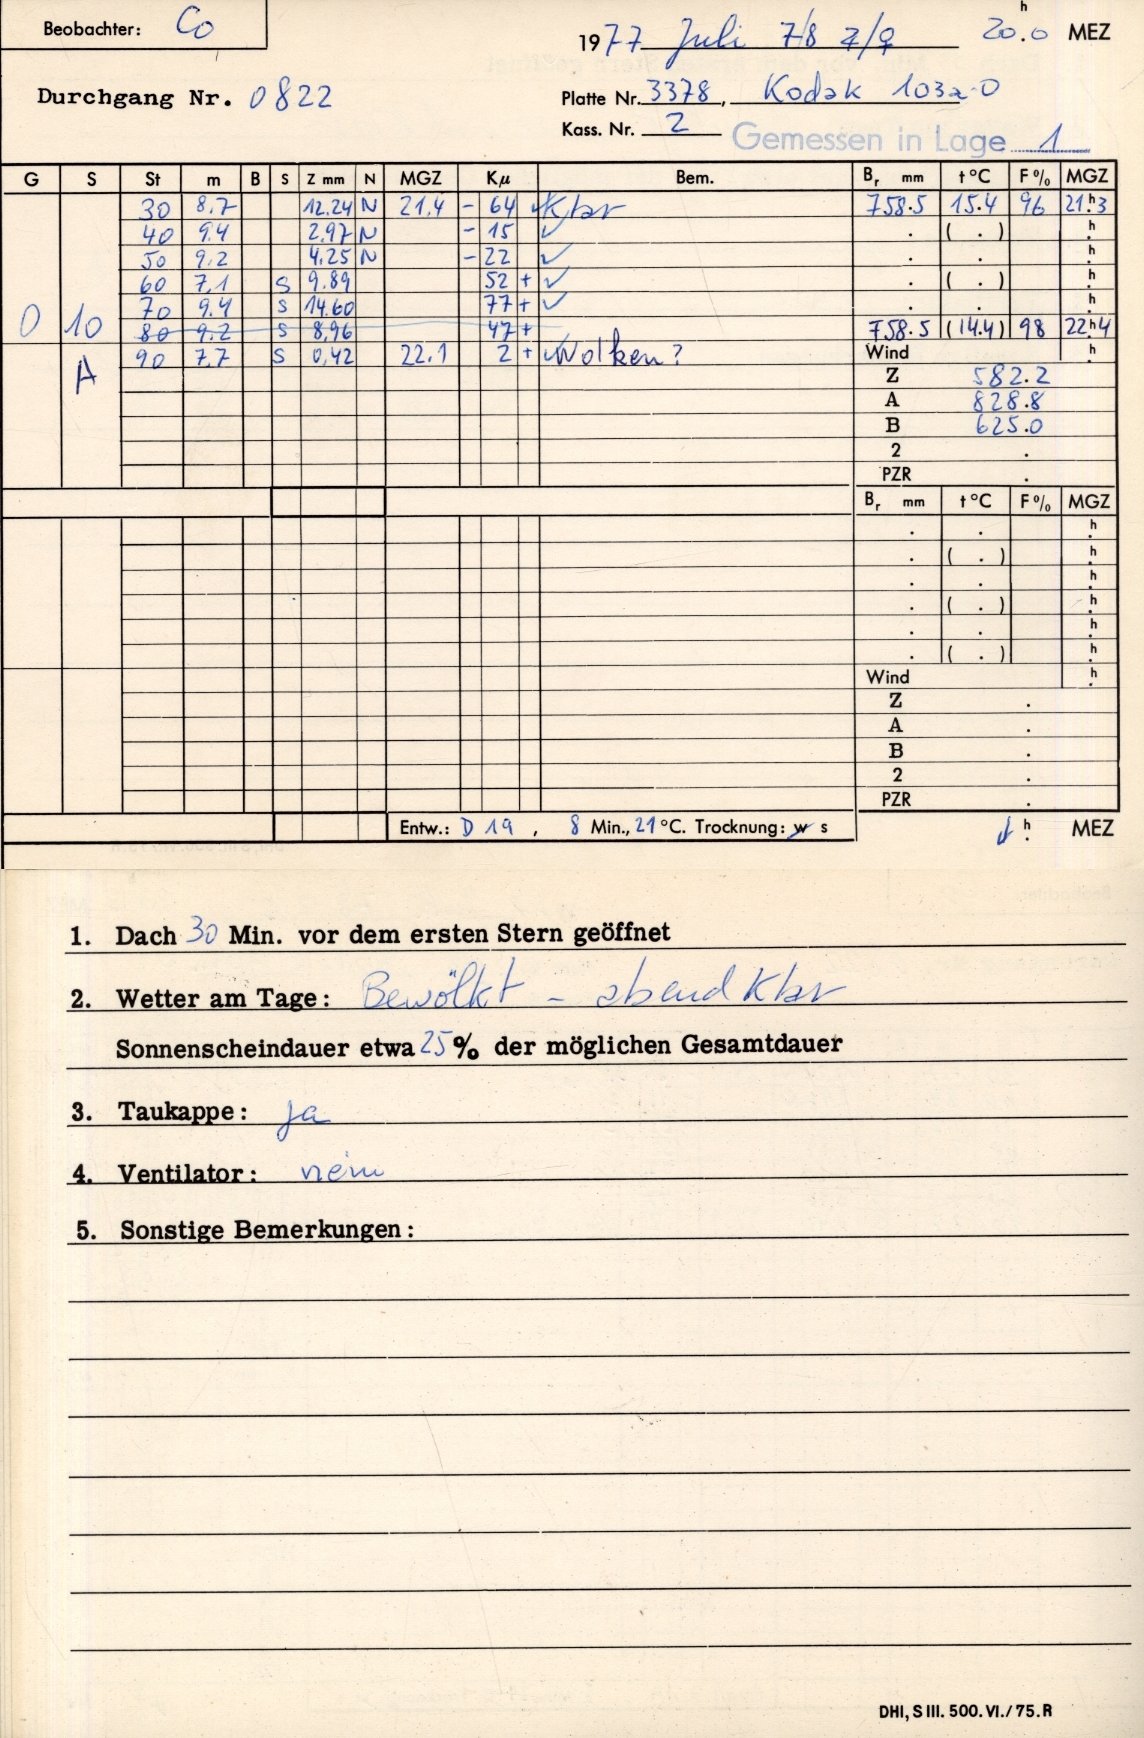 Beobachter: Co
1977 Juli 7/8 ♃/♀ 20.0 h MEZ
Durchgang Nr. 0822
Platte Nr. 3378, Kodak 103a-O
Kass. Nr. 2 Gemessen in Lage 1
G S St m B S Z mm N MGZ Kμ Bem. Br mm t °C F % MGZ
30 8.7 12.24 N 21.4 - 64 ✓ Klar 758.5 15.4 96 21h3
40 9.4 2.97 N - 15 ✓ . ( . ) h
50 9.2 4.25 N - 22 ✓ . . h
60 7.1 S 9.89 52 + ✓ . ( . ) h
70 9.4 S 14.60 77 + ✓ . . h
0 10 80 9.2 S 8.96 47 + 758.5 (14.4) 98 22h4
A 90 7.7 S 0.42 22.1 2 + ✓ Wolken? Wind h
Z 582.2
A 828.8
B 625.0
2 .
PZR .
Br mm t °C F % MGZ
. . h
. ( . ) h
. . h
. ( . ) h
. . h
. ( . ) h
Wind h
Z .
A .
B .
2 .
PZR .
Entw.: D 19, 8 Min., 21 °C. Trocknung: w s h MEZ
1. Dach 30 Min. vor dem ersten Stern geöffnet
2. Wetter am Tage: Bewölkt - abend klar
Sonnenscheindauer etwa 25 % der möglichen Gesamtdauer
3. Taukappe: ja
4. Ventilator: nein
5. Sonstige Bemerkungen:
DHI, S III. 500. VI./75. R